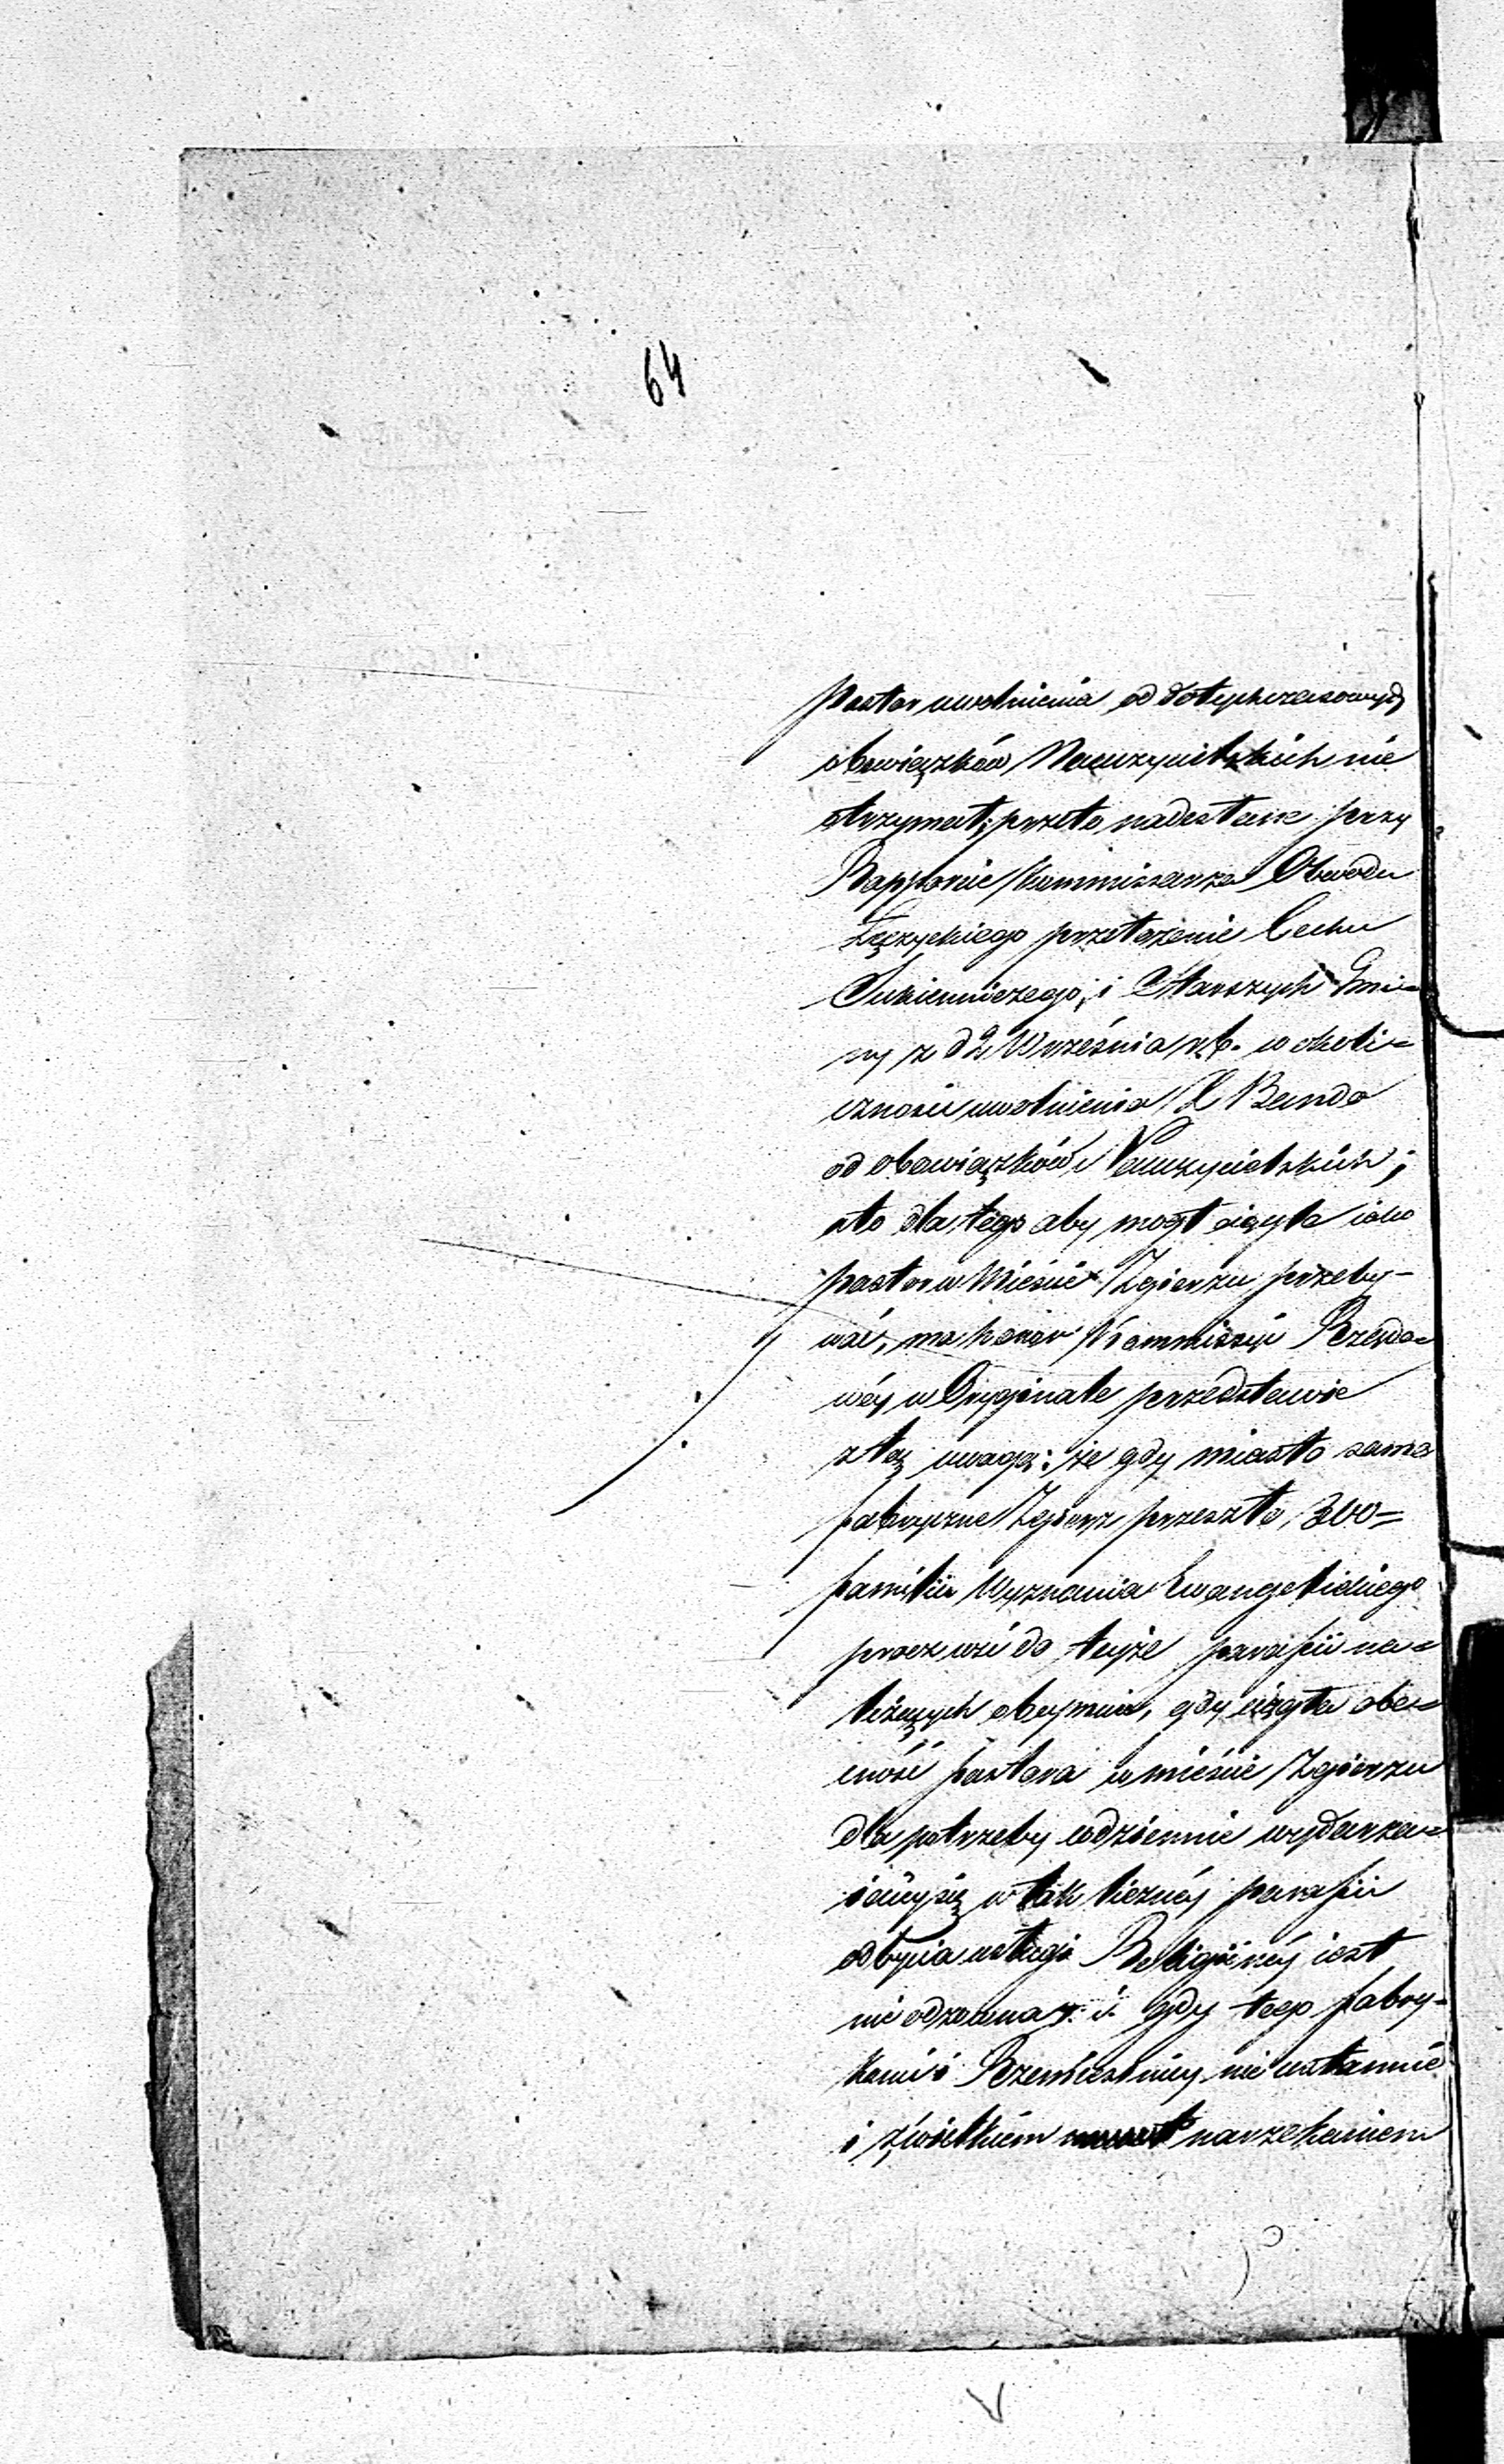 64
Pastor uwolnienia od dotychczasowych
obowiązków Nauczycielskich nie
otrzymał; przeto nadesłane przy
Rapporcie Kommissarza Obwodu
Łęczyckiego przełożenie Cechu
Sukienniczego, i Starszych Gmi=
ny z d 2 Września r.b. w okoli=
czności uwolnienia X Bando
od obowiązków Nauczycielskich;
a to dla tego aby mógł ciągle iako
Pastor w Mieście Zgierzu przeby-
wać, ma honor Kommissyi Rządo=
wéy w Oryginale przedstawić
z tą uwagą: że gdy miasto samo
fabryczne Zgierz przeszło 300=
familii Wyznania Ewangelickiego
prócz wsi do teyże parafii na=
leżących obeymuie, gdy ciągła obe=
cność Pastora w mieście Zgierzu
dla potrzeby codziennie wydarza=
iącéy się w tak licznéy parafii
odbycia usługi Religiinéy iest
nieodzowna; i gdy tego fabry=
kanci i Rzemieślnicy nieustannie
i z wielkiém narzekaniem